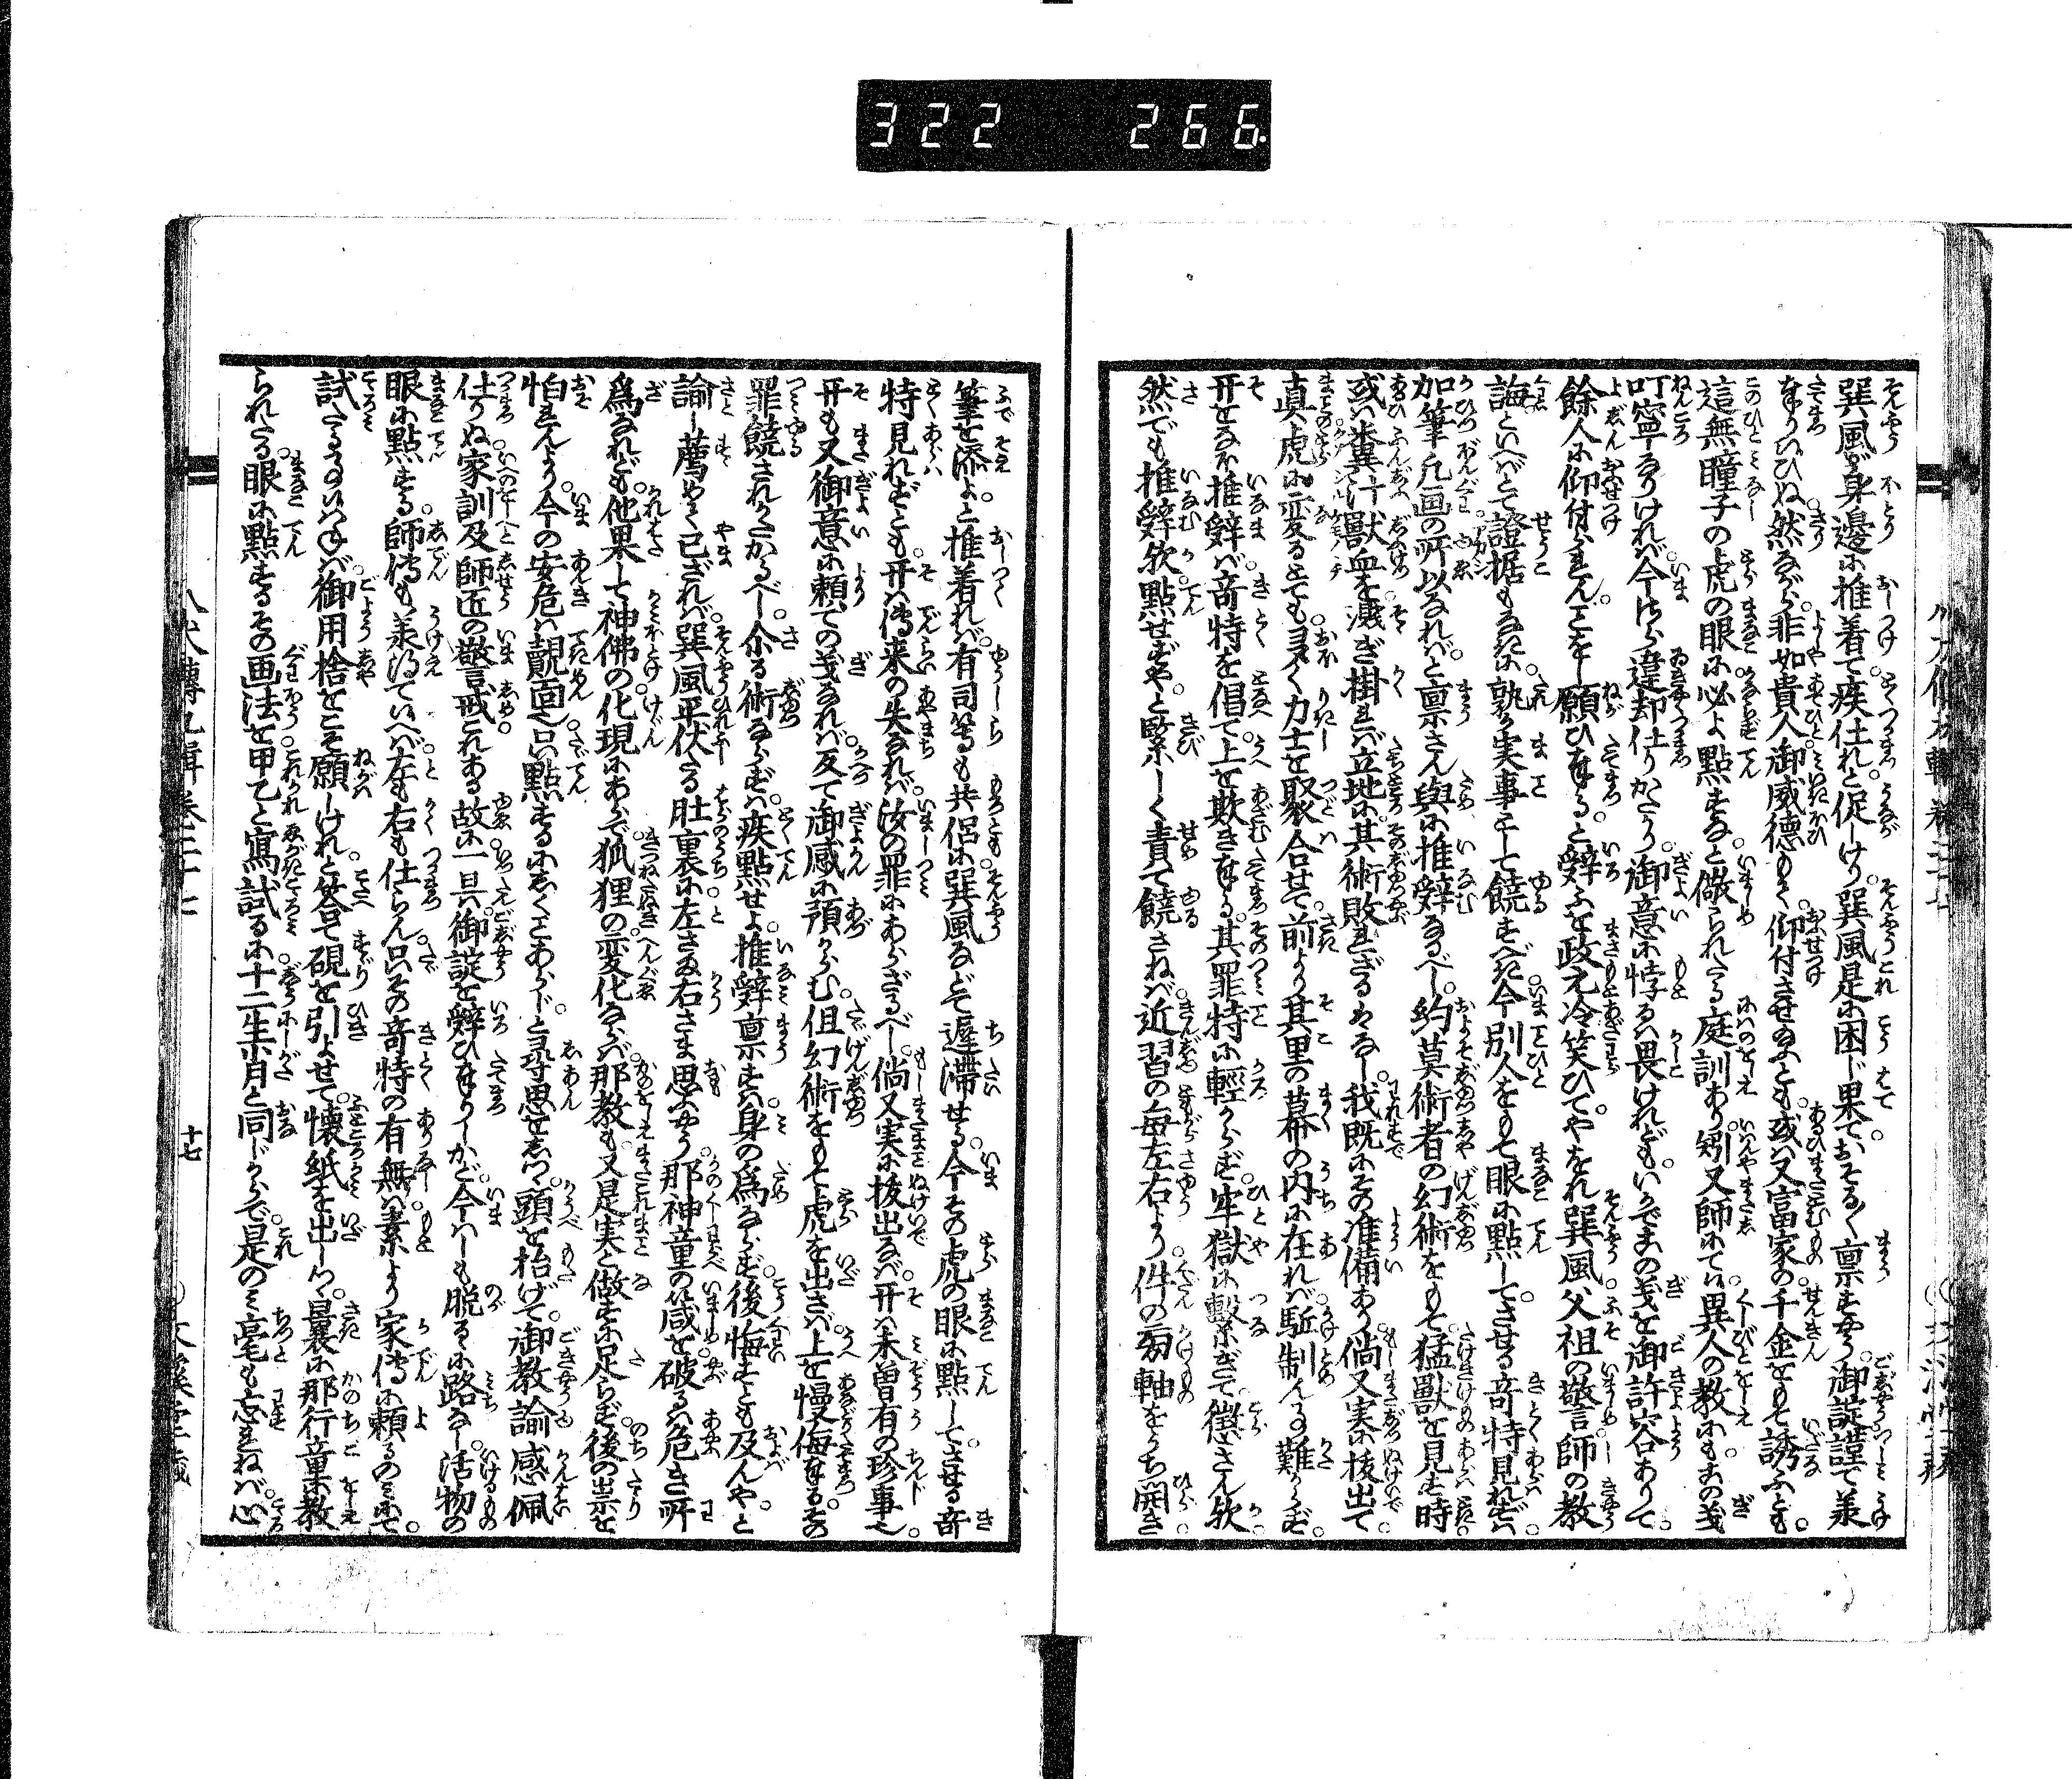 322 266
巽風が身邊に推着て。疾仕れと促しけり。巽風是に困じ果て。おそる〳〵禀すやう。御諚謹で承
奉りひぬ。然ながら。非如貴人御威德もて。仰付させ給ふとも。或は又富家の千金をもて誘ふとも。
這無瞳子の虎の眼に。必よ點すなと。儆られたる庭訓あり。矧又師にては異人の教にも。その義
叮寧なりければ。今さら違却仕りかたかり。御意に悖るは畏けれども。いかでその義を御許容ありて。
餘人に仰付られんことをし。願ひ奉ると。辭ふを政元冷笑ひて。やをれ巽風。父祖の警言師の教
誨といへばとて。證据もなきに。孰か実事として饒すべき。今別人をもて眼に點して。させる奇特見れずは。
加筆は画の所以なれば。と禀さん與に推辭なるべし。約莫術者の幻術をもて。猛獸を見す時。
或は糞汁獸血を。濺ぎ掛れば立地に。其術敗れざるはなし。我既にその准備あり。倘又実に拔出て。
真虎に変るとても。夥く力士を聚合せて。前より其里の幕の内に在れば。駈制んこと難からず。
开をなほ推辭ば。奇特を倡て。上を欺き奉る。其罪特に輕からず。牢獄に繋ぎて。懲さん欤。
然でも推辭欤。點せずや。と緊しく責て饒さねば。近習の毎左右より。件の画軸をうち開き
筆を添よ。と推着れば。有司等も共侶に。巽風などて遲滯せる。今その虎の眼に點して。させる奇
特見れずとも。开は傳来の失なれば。汝の罪にあらざるべし。倘又実に拔出なば。开は未曽有の珍事也。
开も又御意に頼ての義なれば。反て御感に預からむ。但幻術をもて虎を出さば。上を慢侮奉る。その
罪饒されかたかるべし。尓る術ならずは。疾點せよ。推辭禀すは身の爲ならず。後悔すとも及んや。と
諭し薦めて已ざれば。巽風平伏たる肚裏に。左さま右さま思ふやう。那神童の箴を。破るは危き所
爲なれども。他果して神佛の。化現にあらで。狐狸の。変化ならば。那教も。又是実と做すに足らず。後の祟を
怕れんより。今の安危は覿面也。只點するにしくことあらじ。と尋思をしつゝ。頭を抬げて。御教諭感佩
仕りぬ。家訓及師匠の。警戒これある故に。一旦御諚を辭ひ奉りしかど。今はしも脱るゝに路なし。活物の
眼に點する。師傳も承得ていへば。左も右も仕らん。只その奇特の有無は。素より家傳に頼るのみにて。
試たることいはねば。御用捨をこそ願しけれ。と答て硯を引よせて。懷紙を出しつゝ。曩に那行童に教
られたる。眼に點するその画法を。甲乙と寫試るに。十二生肖と同じからで。是のみ毫も忘れねば。心
八犬傳九輯卷二十七
十七